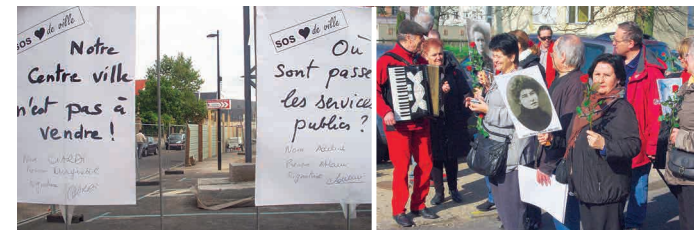 SOS ♥ de ville
Notre
Centre ville
n'est pas à
vendre !
SOS ♥ de ville
Où
sont passe
les services
publics ?
Nom
Signature